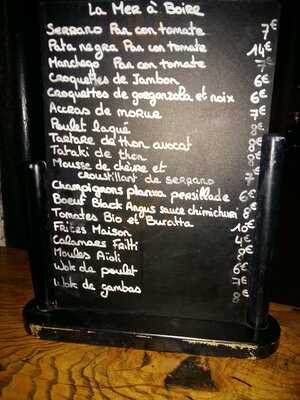 La Mer à Boire
Serrano Pan con tomate 7€
Pata negra Pan con tomate 14€
Manchego Pan con tomate 7€
Croquettes de Jambon 6€
Croquettes de gorgonzola et noix 6€
Accras de morue 7€
Poulet laqué 8€
Tartare de thon avocat 8€
Tataki de thon 8€
Mousse de chèvre et
croustillant de serrano 7€
Champignons plancha persillade 6€
Boeuf Black Angus sauce chimichurri 8€
Tomates Bio et Buratta 10€
Frites Maison 4€
Calamars Fritti 8€
Moules Aïoli 6€
Wok de poulet 7€
Wok de gambas 8€